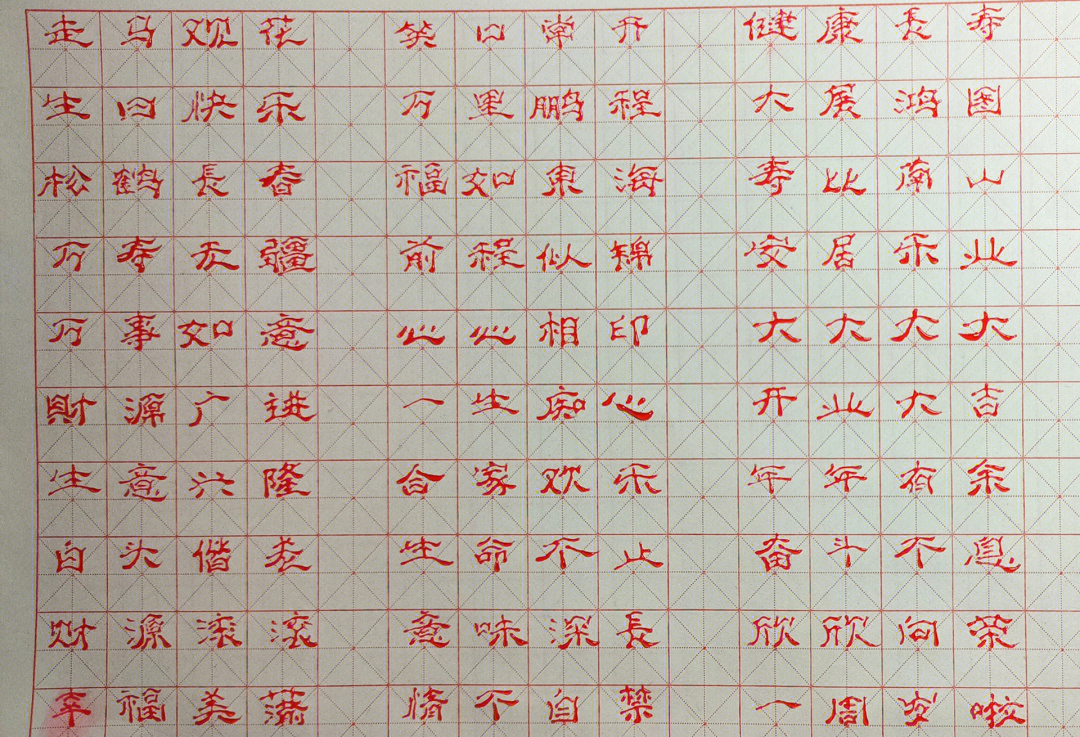 走马观花 笑口常开 健康長寿
生日快乐 万里鹏程 大展鸿图
松鹤長春 福如東海 寿比南山
万寿无疆 前程似锦 安居乐业
万事如意 心心相印 大大大大
財源广进 一生痴心 开业大吉
生意兴隆 合家欢乐 年年有余
白头偕老 生命不止 奋斗不息
财源滚滚 意味深長 欣欣向荣
幸福美满 情不自禁 一周岁啦